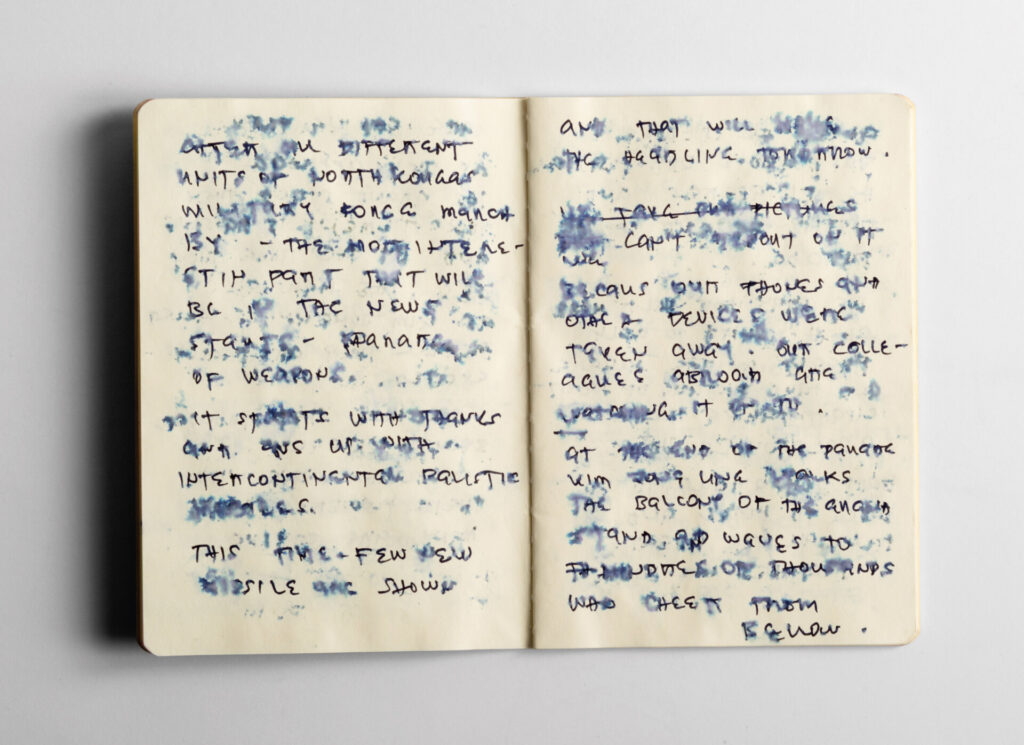 AFTER ALL DIFFERENT
UNITS OF NORTH KOREAS
MILITARY FORCE MARCH
BY - THE MOST INTERE-
STIN PART THAT WILL
BE IN THE NEWS
STARTS - PARADE
OF WEAPONS.
IT STARTS WITH TANKS
AND ENDS UP WITH
INTERCONTINENTAL BALISTIC
MISSILES.
THIS TIME FEW NEW
MISSILE ARE SHOWN
AND THAT WILL
THE HEADLINE TOMORROW.
CAN'T REPORT ON IT
BECAUS OUR PHONES AND
OTHER DEVICES WERE
TAKEN AWAY. OUR COLLE-
AGUES ABROAD ARE
IT
AT THE END OF THE PARADE
KIM JONG UNE WALKS
THE BALCONY OF THE
STAND AND WAVES TO
OF THOUSANDS
WHO CHEER FROM
BELLOW.